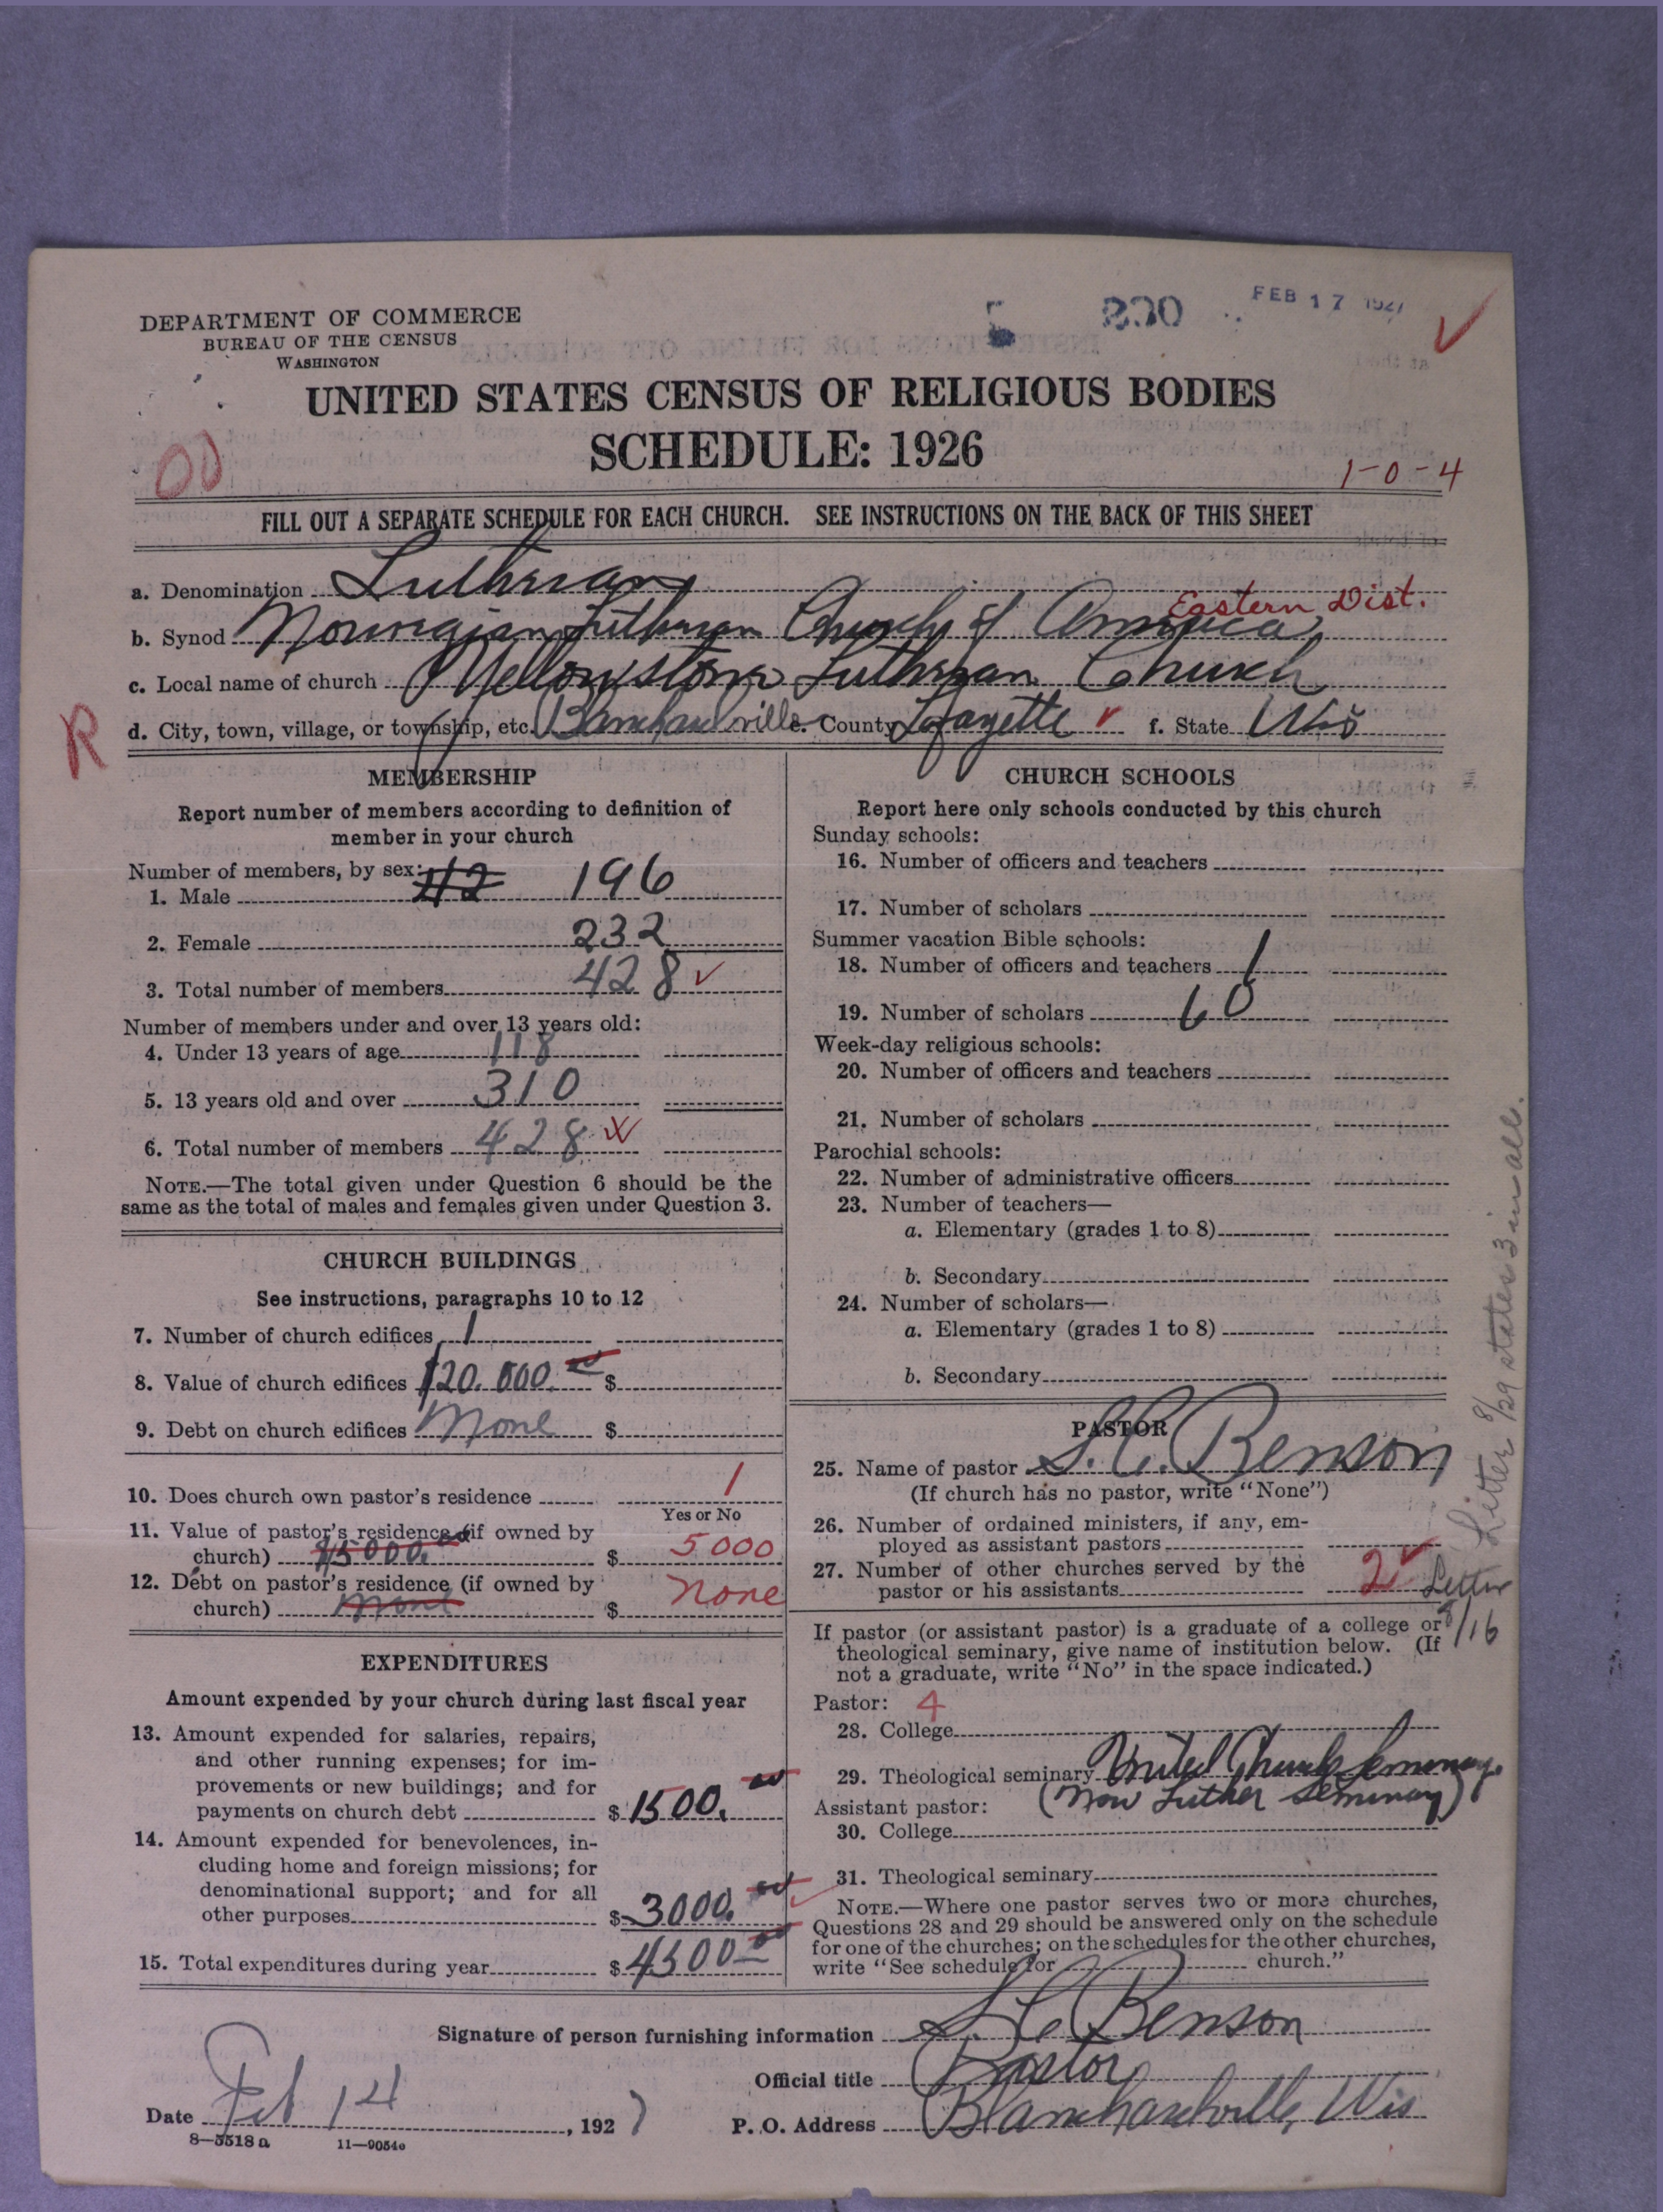 DEPARTMENT OF COMMERCE
BUREAU OF THE CENSUS
WASHINGTON
FEB 17 1927
UNITED STATES CENSUS OF RELIGIOUS BODIES
SCHEDULE: 1926
00
1-0-4
FILL OUT A SEPARATE SCHEDULE FOR EACH CHURCH. SEE INSTRUCTIONS ON THE BACK OF THIS SHEET
a. Denomination Lutheran
Eastern Dist.
b. Synod Norwegian Lutheran Church of America
c. Local name of church Yellowstone Lutheran Church
R
d. City, town, village, or township, etc. Blanchardville e. County Lafayette f. State Wis
MEMBERSHIP
Report number of members according to definition of
member in your church
Number of members, by sex:
1. Male 112 196
2. Female 232
3. Total number of members 428
Number of members under and over 13 years old:
4. Under 13 years of age 118
5. 13 years old and over 310
6. Total number of members 428
NOTE.—The total given under Question 6 should be the
same as the total of males and females given under Question 3.
CHURCH BUILDINGS
See instructions, paragraphs 10 to 12
7. Number of church edifices 1
8. Value of church edifices $20.000.00 $
9. Debt on church edifices None $
10. Does church own pastor's residence 1
Yes or No
11. Value of pastor's residence (if owned by
church) $15000.00 $ 5000
12. Debt on pastor's residence (if owned by
church) None $ none
EXPENDITURES
Amount expended by your church during last fiscal year
13. Amount expended for salaries, repairs,
and other running expenses; for im-
provements or new buildings; and for
payments on church debt $ 1500.00
14. Amount expended for benevolences, in-
cluding home and foreign missions; for
denominational support; and for all
other purposes $ 3000.00
15. Total expenditures during year $ 4500.00
CHURCH SCHOOLS
Report here only schools conducted by this church
Sunday schools:
16. Number of officers and teachers
17. Number of scholars
Summer vacation Bible schools:
18. Number of officers and teachers 1
19. Number of scholars 60
Week-day religious schools:
20. Number of officers and teachers
21. Number of scholars
Parochial schools:
22. Number of administrative officers
23. Number of teachers—
a. Elementary (grades 1 to 8)
b. Secondary
24. Number of scholars—
a. Elementary (grades 1 to 8)
b. Secondary
PASTOR
25. Name of pastor S. C. Benson
(If church has no pastor, write "None")
26. Number of ordained ministers, if any, em-
ployed as assistant pastors
27. Number of other churches served by the
pastor or his assistants 2 Letter
8/16
If pastor (or assistant pastor) is a graduate of a college or
theological seminary, give name of institution below. (If
not a graduate, write "No" in the space indicated.)
Pastor: 4
28. College
29. Theological seminary United Church Seminary
(Now Luther Seminary)
Assistant pastor:
30. College
31. Theological seminary
NOTE.—Where one pastor serves two or more churches,
Questions 28 and 29 should be answered only on the schedule
for one of the churches; on the schedules for the other churches,
write "See schedule for church."
Letter 8/29 states 3 in all.
Signature of person furnishing information S. C. Benson
Official title Pastor
Date Feb 14, 1927 P. O. Address Blanchardville, Wis
8—5518 a 11—9054c